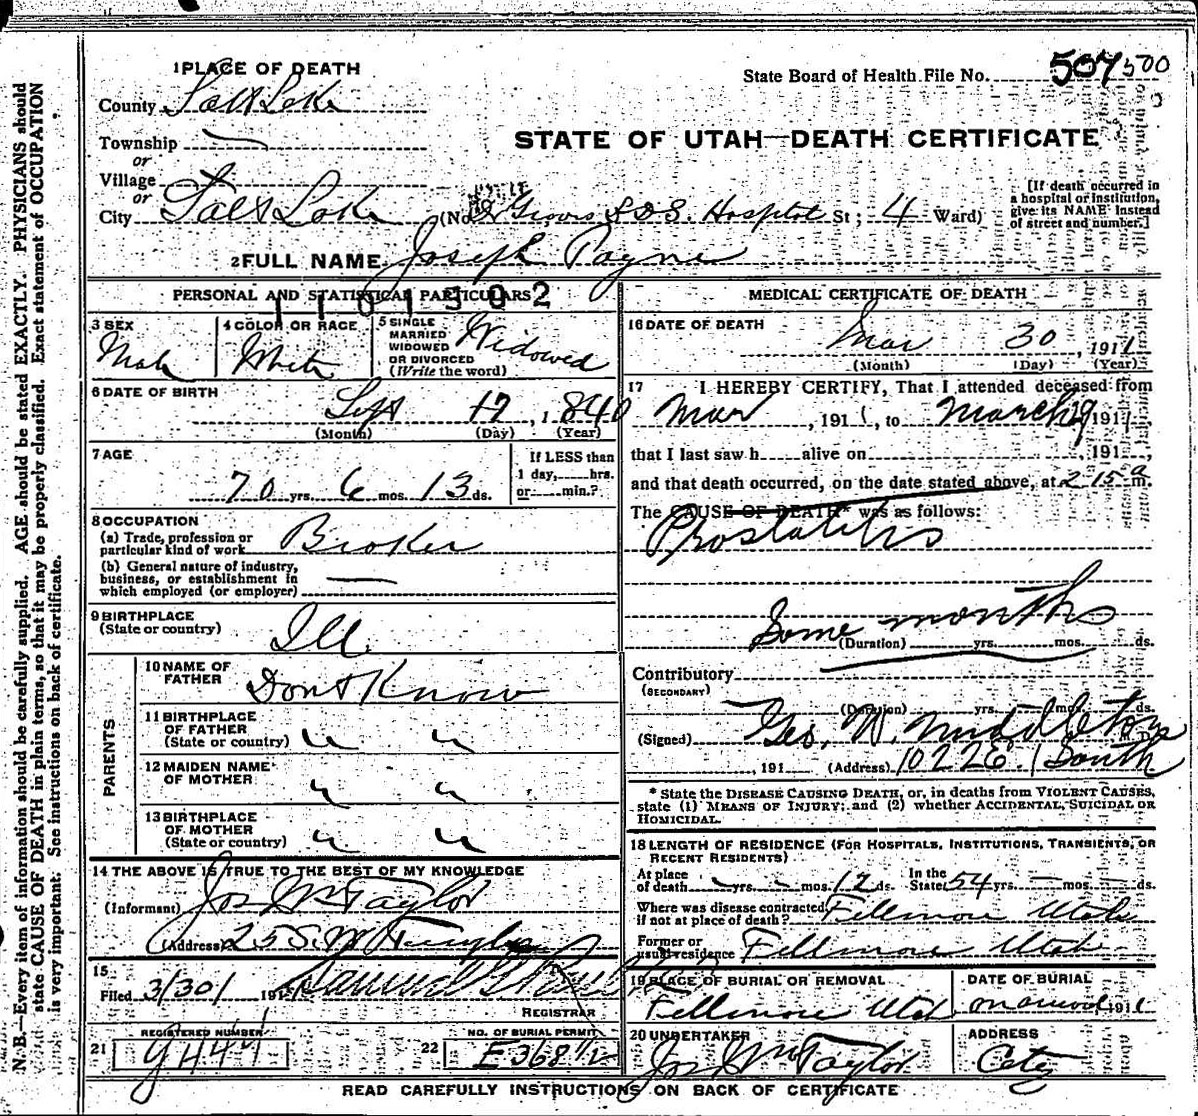 N. B.—Every item of information should be carefully supplied. AGE should be stated EXACTLY. PHYSICIANS should
state CAUSE OF DEATH in plain terms, so that it may be properly classified. Exact statement of OCCUPATION
is very important. See instructions on back of certificate.
1 PLACE OF DEATH
State Board of Health File No. 507 500
County Salt Lake
STATE OF UTAH—DEATH CERTIFICATE
Township —
or
Village
or
City Salt Lake (No. Groves L.D.S. Hospital St; 4 Ward)
[If death occurred in
a hospital or institution,
give its NAME instead
of street and number.]
2 FULL NAME Joseph Payne
PERSONAL AND STATISTICAL PARTICULARS
1101502
3 SEX
Male
4 COLOR OR RACE
White
5 SINGLE
MARRIED
WIDOWED
OR DIVORCED
(Write the word)
Widowed
6 DATE OF BIRTH
Sept 17, 1840
(Month) (Day) (Year)
7 AGE
70 yrs. 6 mos. 13 ds.
If LESS than
1 day, hrs.
or min.?
8 OCCUPATION
(a) Trade, profession or
particular kind of work Broker
(b) General nature of industry,
business, or establishment in
which employed (or employer) —
9 BIRTHPLACE
(State or country) Ill.
PARENTS
10 NAME OF
FATHER Dont Know
11 BIRTHPLACE
OF FATHER
(State or country) " "
12 MAIDEN NAME
OF MOTHER " "
13 BIRTHPLACE
OF MOTHER
(State or country) " "
14 THE ABOVE IS TRUE TO THE BEST OF MY KNOWLEDGE
(Informant) Jos Wm Taylor
(Address) 25 S. W Temple
15
Filed 3/30/ 191
REGISTRAR
REGISTERED NUMBER
21
NO. OF BURIAL PERMIT
22 E368½
MEDICAL CERTIFICATE OF DEATH
16 DATE OF DEATH
Mar 30, 1911
(Month) (Day) (Year)
17 I HEREBY CERTIFY, That I attended deceased from
Mar, 1911, to March 29 1911,
that I last saw h alive on , 191 ,
and that death occurred, on the date stated above, at 2 15 a m.
The CAUSE OF DEATH* was as follows:
Prostatitis
Some months
(Duration) yrs. mos. ds.
Contributory
(SECONDARY)
(Duration) yrs. mos. ds.
(Signed) Geo. W. Middleton
, 191 (Address) 1022 E. 1 South
* State the DISEASE CAUSING DEATH, or, in deaths from VIOLENT CAUSES,
state (1) MEANS OF INJURY; and (2) whether ACCIDENTAL, SUICIDAL OR
HOMICIDAL.
18 LENGTH OF RESIDENCE (FOR HOSPITALS, INSTITUTIONS, TRANSIENTS, OR
RECENT RESIDENTS)
At place
of death - yrs. - mos. 12 ds.
In the
State 54 yrs. - mos. - ds.
Where was disease contracted
if not at place of death? Fillmore Utah
Former or
usual residence Fillmore Utah
19 PLACE OF BURIAL OR REMOVAL
Fillmore Utah
DATE OF BURIAL
1911
20 UNDERTAKER
Jos Wm Taylor
ADDRESS
City
READ CAREFULLY INSTRUCTIONS ON BACK OF CERTIFICATE